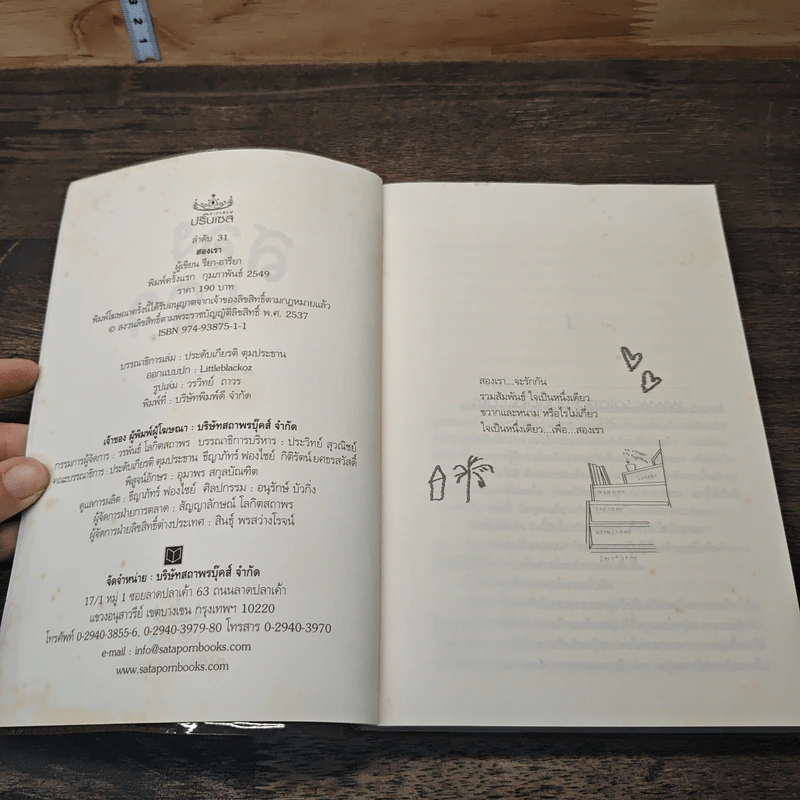 3 2 1
สำนักพิมพ์
ปริ๊นเซส
ลำดับ 31
สองเรา
ผู้เขียน รียา-อารียา
พิมพ์ครั้งแรก กุมภาพันธ์ 2549
ราคา 190 บาท
พิมพ์โฆษณาครั้งนี้ได้รับอนุญาตจากเจ้าของลิขสิทธิ์ตามกฎหมายแล้ว
© สงวนลิขสิทธิ์ตามพระราชบัญญัติลิขสิทธิ์ พ.ศ. 2537
ISBN 974-93875-1-1
บรรณาธิการเล่ม : ประดับเกียรติ ตุมประธาน
ออกแบบปก : Littleblackoz
รูปเล่ม : วรวิทย์ ถาวร
พิมพ์ที่ : บริษัทพิมพ์ดี จำกัด
เจ้าของ ผู้พิมพ์ผู้โฆษณา : บริษัทสถาพรบุ๊คส์ จำกัด
กรรมการผู้จัดการ : วรพันธ์ โลกิตสถาพร บรรณาธิการบริหาร : ประวิทย์ สุวณิชย์
คณะบรรณาธิการ : ประดับเกียรติ ตุมประธาน ธีญาภัทร์ ฟองไชย์ กิติรัตน์ ยศธรสวัสดิ์
พิสูจน์อักษร : อุมาพร สกุลบัณฑิต
ดูแลการผลิต : ธีญาภัทร์ ฟองไชย์ ศิลปกรรม : อนุรักษ์ บัวกิ่ง
ผู้จัดการฝ่ายการตลาด : สัญญาลักษณ์ โลกิตสถาพร
ผู้จัดการฝ่ายลิขสิทธิ์ต่างประเทศ : สินธุ์ พรสว่างโรจน์
จัดจำหน่าย : บริษัทสถาพรบุ๊คส์ จำกัด
17/1 หมู่ 1 ซอยลาดปลาเค้า 63 ถนนลาดปลาเค้า
แขวงอนุสาวรีย์ เขตบางเขน กรุงเทพฯ 10220
โทรศัพท์ 0-2940-3855-6, 0-2940-3979-80 โทรสาร 0-2940-3970
e-mail : info@satapornbooks.com
www.satapornbooks.com
สองเรา...จะรักกัน
รวมสัมพันธ์ ใจเป็นหนึ่งเดียว
ขวากและหนาม หรือไรไม่เกี่ยว
ใจเป็นหนึ่งเดียว...เพื่อ...สองเรา
SUNDAY
MONDAY
TUESDAY
WEDNESDAY
THURSDAY